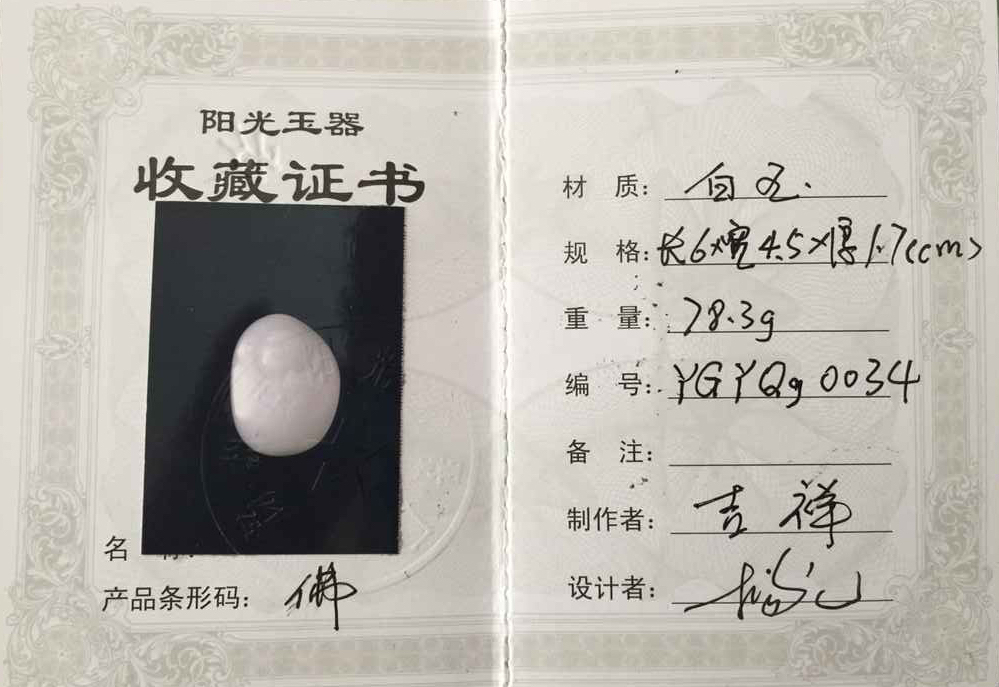 阳光玉器
收藏证书
名
产品条形码: 佛
材 质: 白玉.
规 格: 长6×宽4.5×厚1.7(cm)
重 量: 78.3g
编 号: YGYQg0034
备 注:
制作者: 吉祥
设计者: